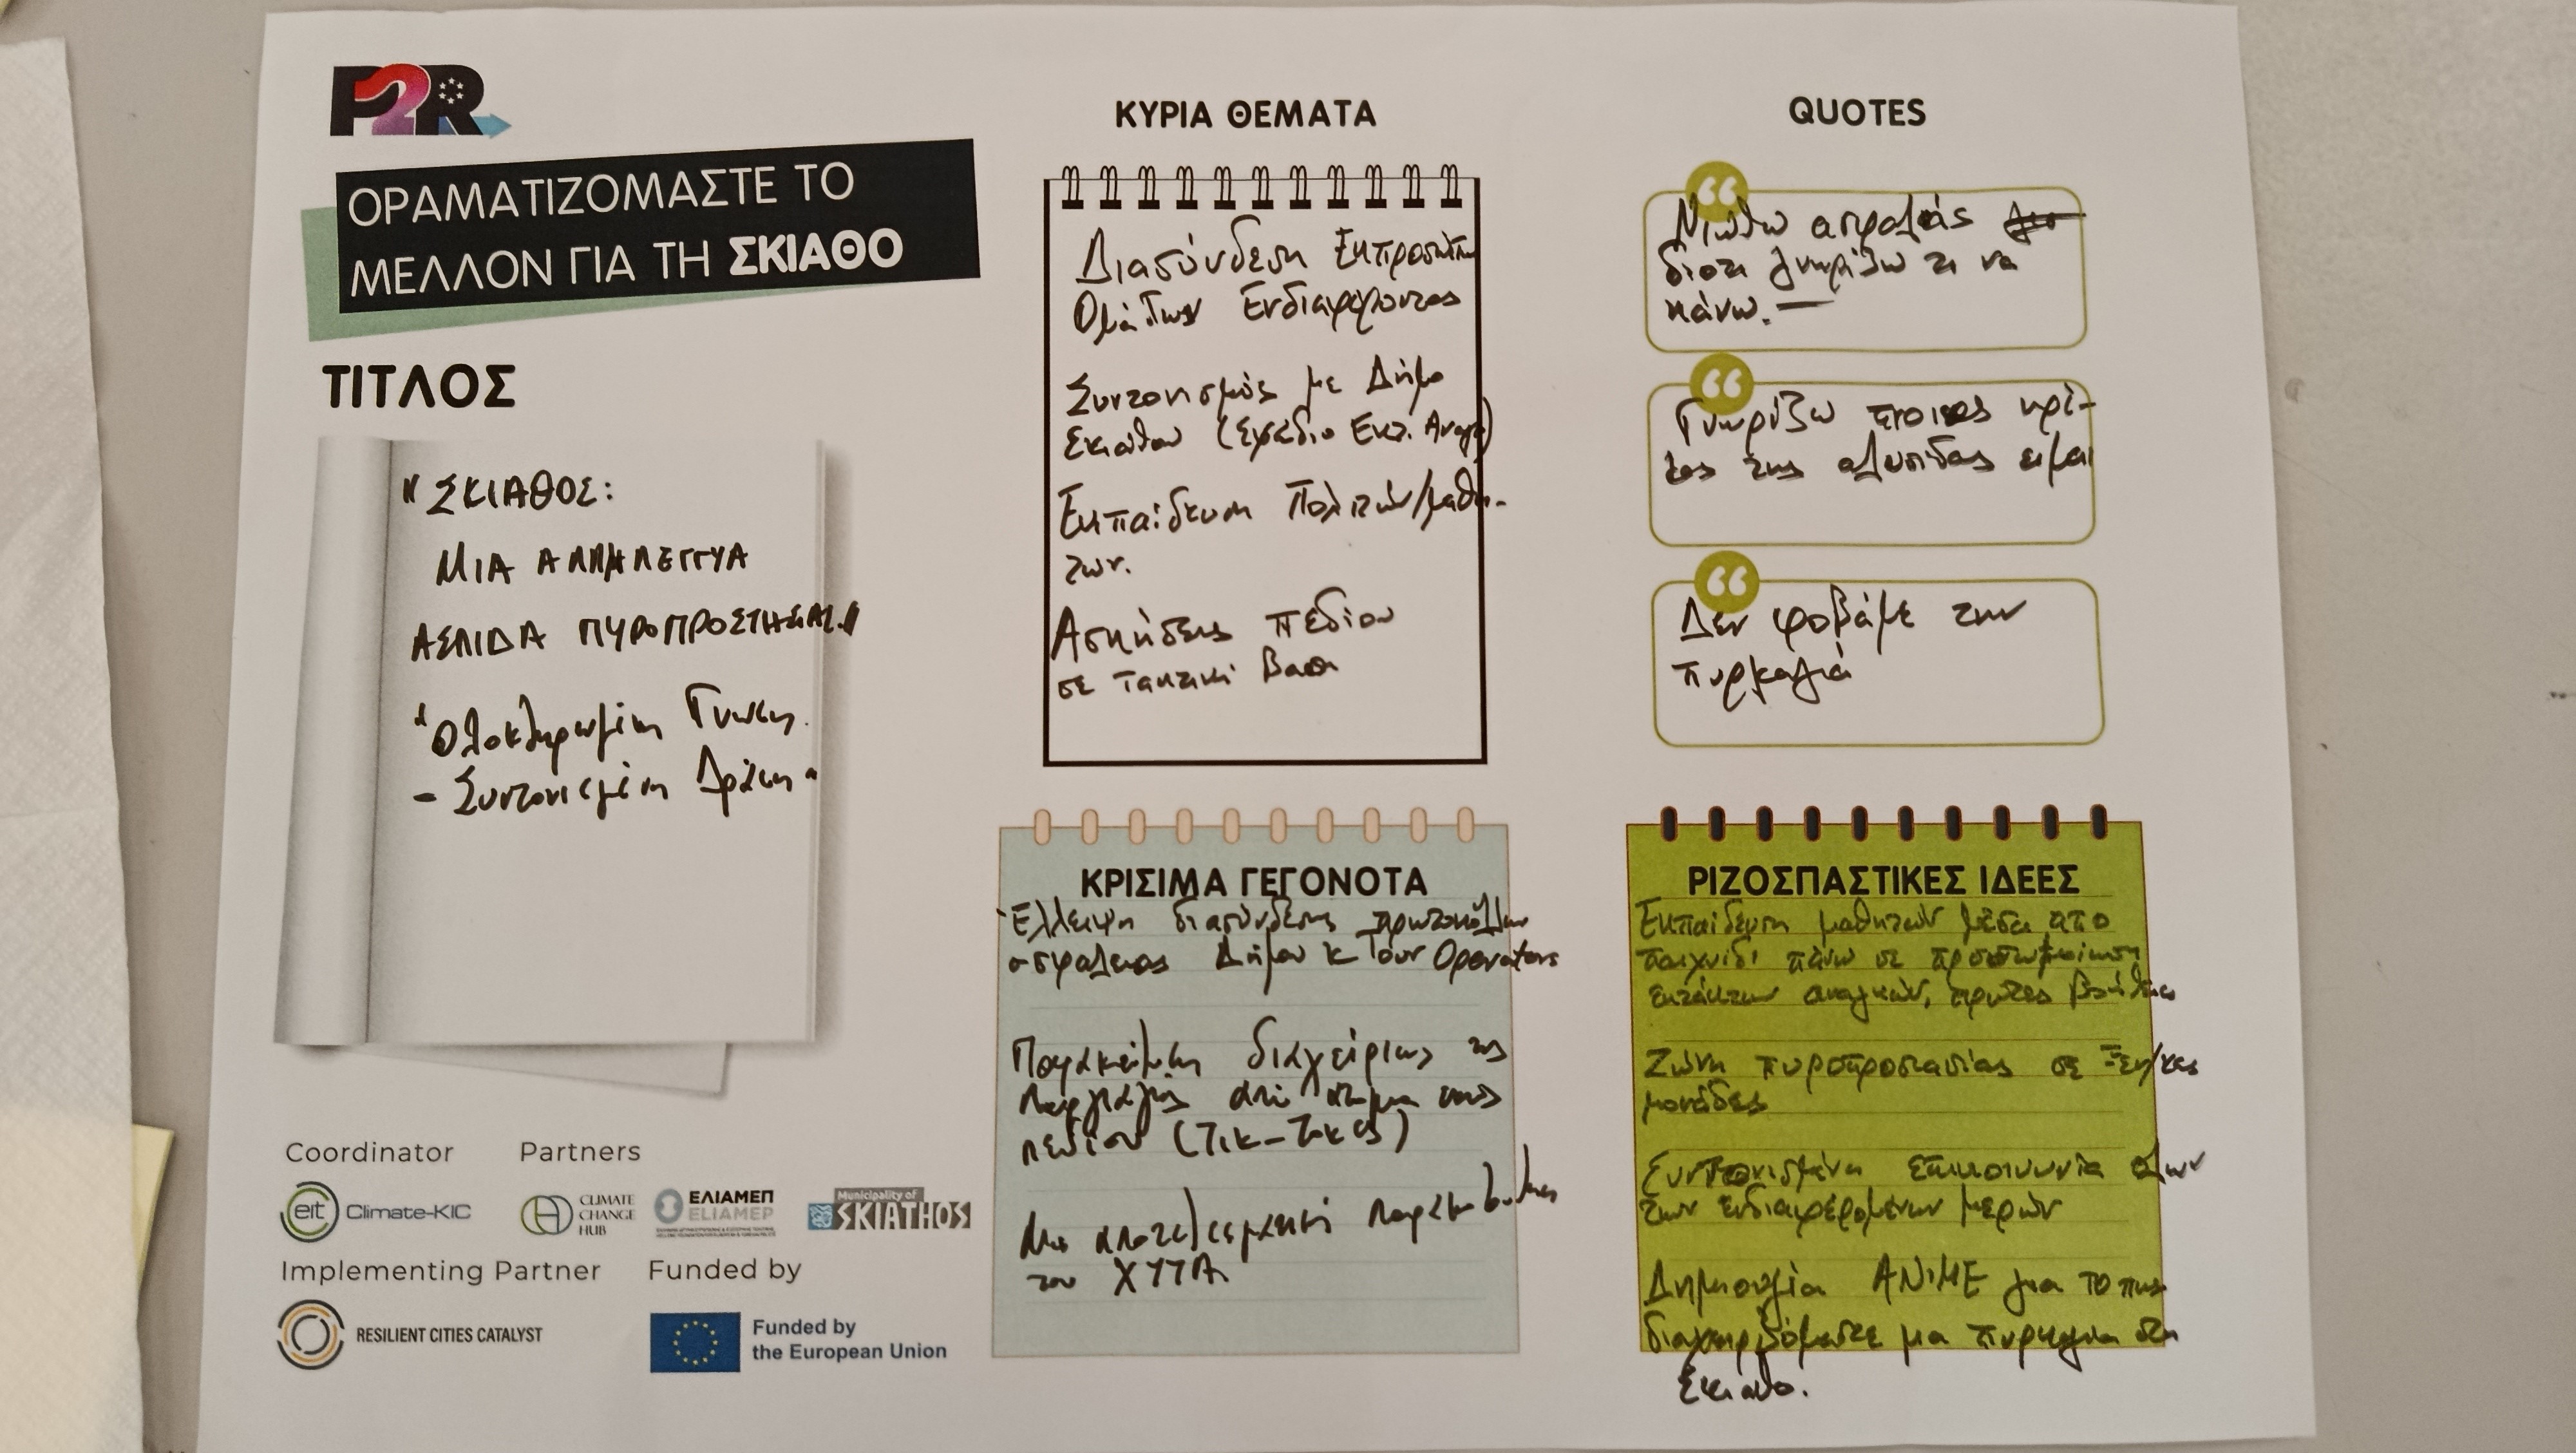 P2R
ΟΡΑΜΑΤΙΖΟΜΑΣΤΕ ΤΟ
ΜΕΛΛΟΝ ΓΙΑ ΤΗ ΣΚΙΑΘΟ
ΤΙΤΛΟΣ
"ΣΚΙΑΘΟΣ:
ΜΙΑ ΑΛΛΗΛΕΓΓΥΑ
ΑΣΠΙΔΑ ΠΥΡΟΠΡΟΣΤΑΣΙΑΣ"
"Ολοκληρωμένη Γνώση
- Συντονισμένη Δράση"
Coordinator
eit Climate-KIC
Partners
CLIMATE
CHANGE
HUB
ΕΛΙΑΜΕΠ
ELIAMEP
Municipality of
SKIATHOS
Implementing Partner
RESILIENT CITIES CATALYST
Funded by
Funded by
the European Union
ΚΥΡΙΑ ΘΕΜΑΤΑ
Διασύνδεση Εκπροσώπων
Ομάδων Ενδιαφέροντος
Συντονισμός με Δήμο
Σκιάθου (Σχέδιο Εκτ. Αναγκ)
Εκπαίδευση Πολιτών/μαθη-
των.
Ασκήσεις πεδίου
σε τακτική βαση
QUOTES
Νιώθω ασφαλής
διότι γνωρίζω τι να
κάνω.
Γνωρίζω ποιος κρί-
κος της αλυσίδας είμαι
Δεν φοβάμε την
πυρκαγιά
ΚΡΙΣΙΜΑ ΓΕΓΟΝΟΤΑ
Έλλειψη διασύνδεσης πρωτοκόλλων
ασφαλειας Δήμου κ Tour Operators
διαχείρισης της
πυρκαγιάς από
πεδίου (Τικ-Τοκερς)
Μη αποτελεσματική
του ΧΥΤΑ
ΡΙΖΟΣΠΑΣΤΙΚΕΣ ΙΔΕΕΣ
Εκπαίδευση μαθητών μέσα απο
παιχνίδι πάνω σε προσωμοίωση
εκτάκτων αναγκών, πρωτες βοήθειες
Ζώνη πυροπροστασίας σε Ξεν/κες
μονάδες
Συντονισμένη επικοινωνία όλων
των ενδιαφερόμενων μερών
Δημιουργία ΑΝΙΜΕ για το πως
διαχειριζόμαστε μια πυρκαγια στη
Σκιαθο.